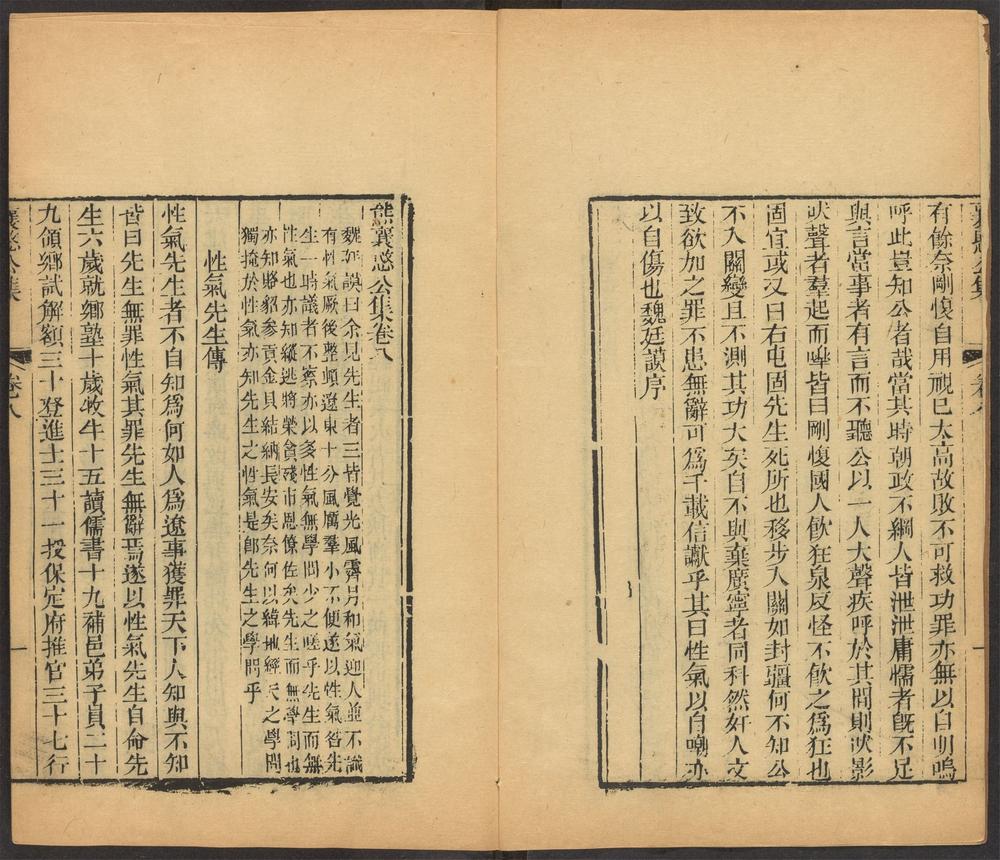 襄愍公集
卷八
一
有餘奈剛愎自用視已太高故敗不可救功罪亦無以自明嗚
呼此豈知公者哉當其時朝政不綱人皆泄泄庸懦者旣不足
與言當事者有言而不聽公以一人大聲疾呼於其間則吠影
吠聲者羣起而唪皆曰剛愎國人飮狂泉反怪不飮之爲狂也
固宜或又曰右屯固先生死所也移步入關如封疆何不知公
不入關變且不測其功大矣自不與棄廣寧者同科然奸人文
致欲加之罪不患無辭可爲千載信讞乎其曰性氣以自嘲亦
以自傷也魏廷謨序
熊襄愍公集卷八
魏廷謨曰余見先生者三皆覺光風霽月和氣迎人並不識
有性氣厥後整頓遼東十分風厲羣小不便遂以性氣咎先
生一時議者不察亦以多性氣無學問少之嗟乎先生而無
性氣也亦知縱逃將榮貪殘市恩僚佐矣先生而無學問也
亦知賂貂參貢金貝結納長安矣奈何以緯地經天之學問
獨掩於性氣亦知先生之性氣是卽先生之學問乎
性氣先生傳
性氣先生者不自知爲何如人爲遼事獲罪天下人知與不知
皆曰先生無罪性氣其罪先生無辭焉遂以性氣先生自命先
生六歲就鄉塾十歲牧牛十五讀儒書十九補邑弟子員二十
九領鄉試解額三十登進士三十一授保定府推官三十七行
襄愍公集
卷八
一